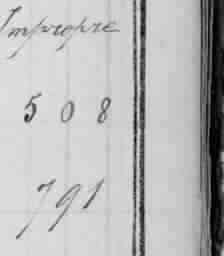 Impropre
5 0 8
791